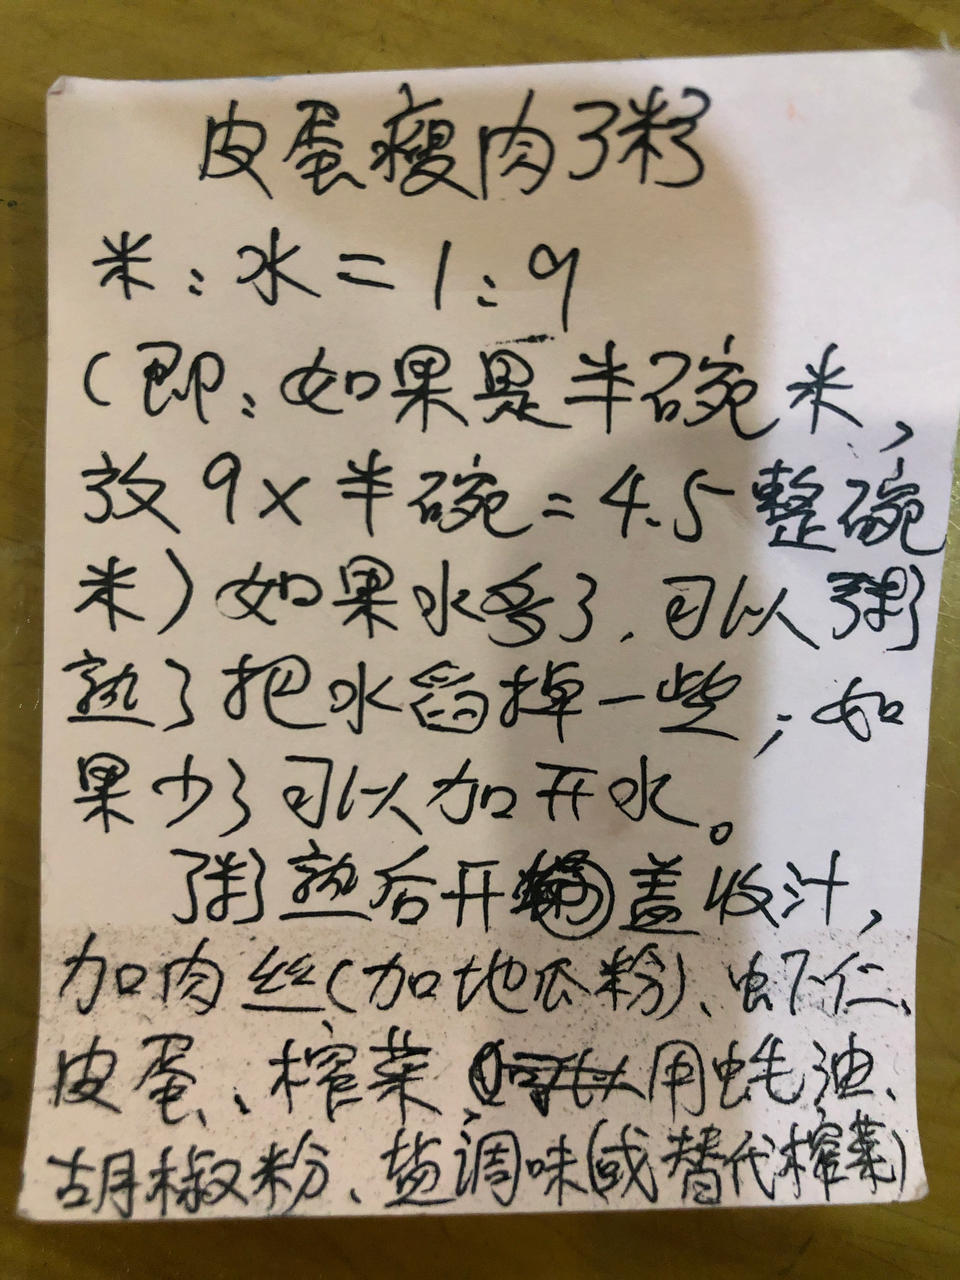 皮蛋瘦肉粥
米：水=1：9
（即：如果是半碗米，
放9×半碗=4.5整碗
米）如果水多了，可以粥
熟了把水舀掉一些；如
果少了可以加开水。
粥熟后开盖收汁，
加肉丝（加地瓜粉）、虾仁、
皮蛋、榨菜，用蚝油、
胡椒粉、盐调味（或替代榨菜）